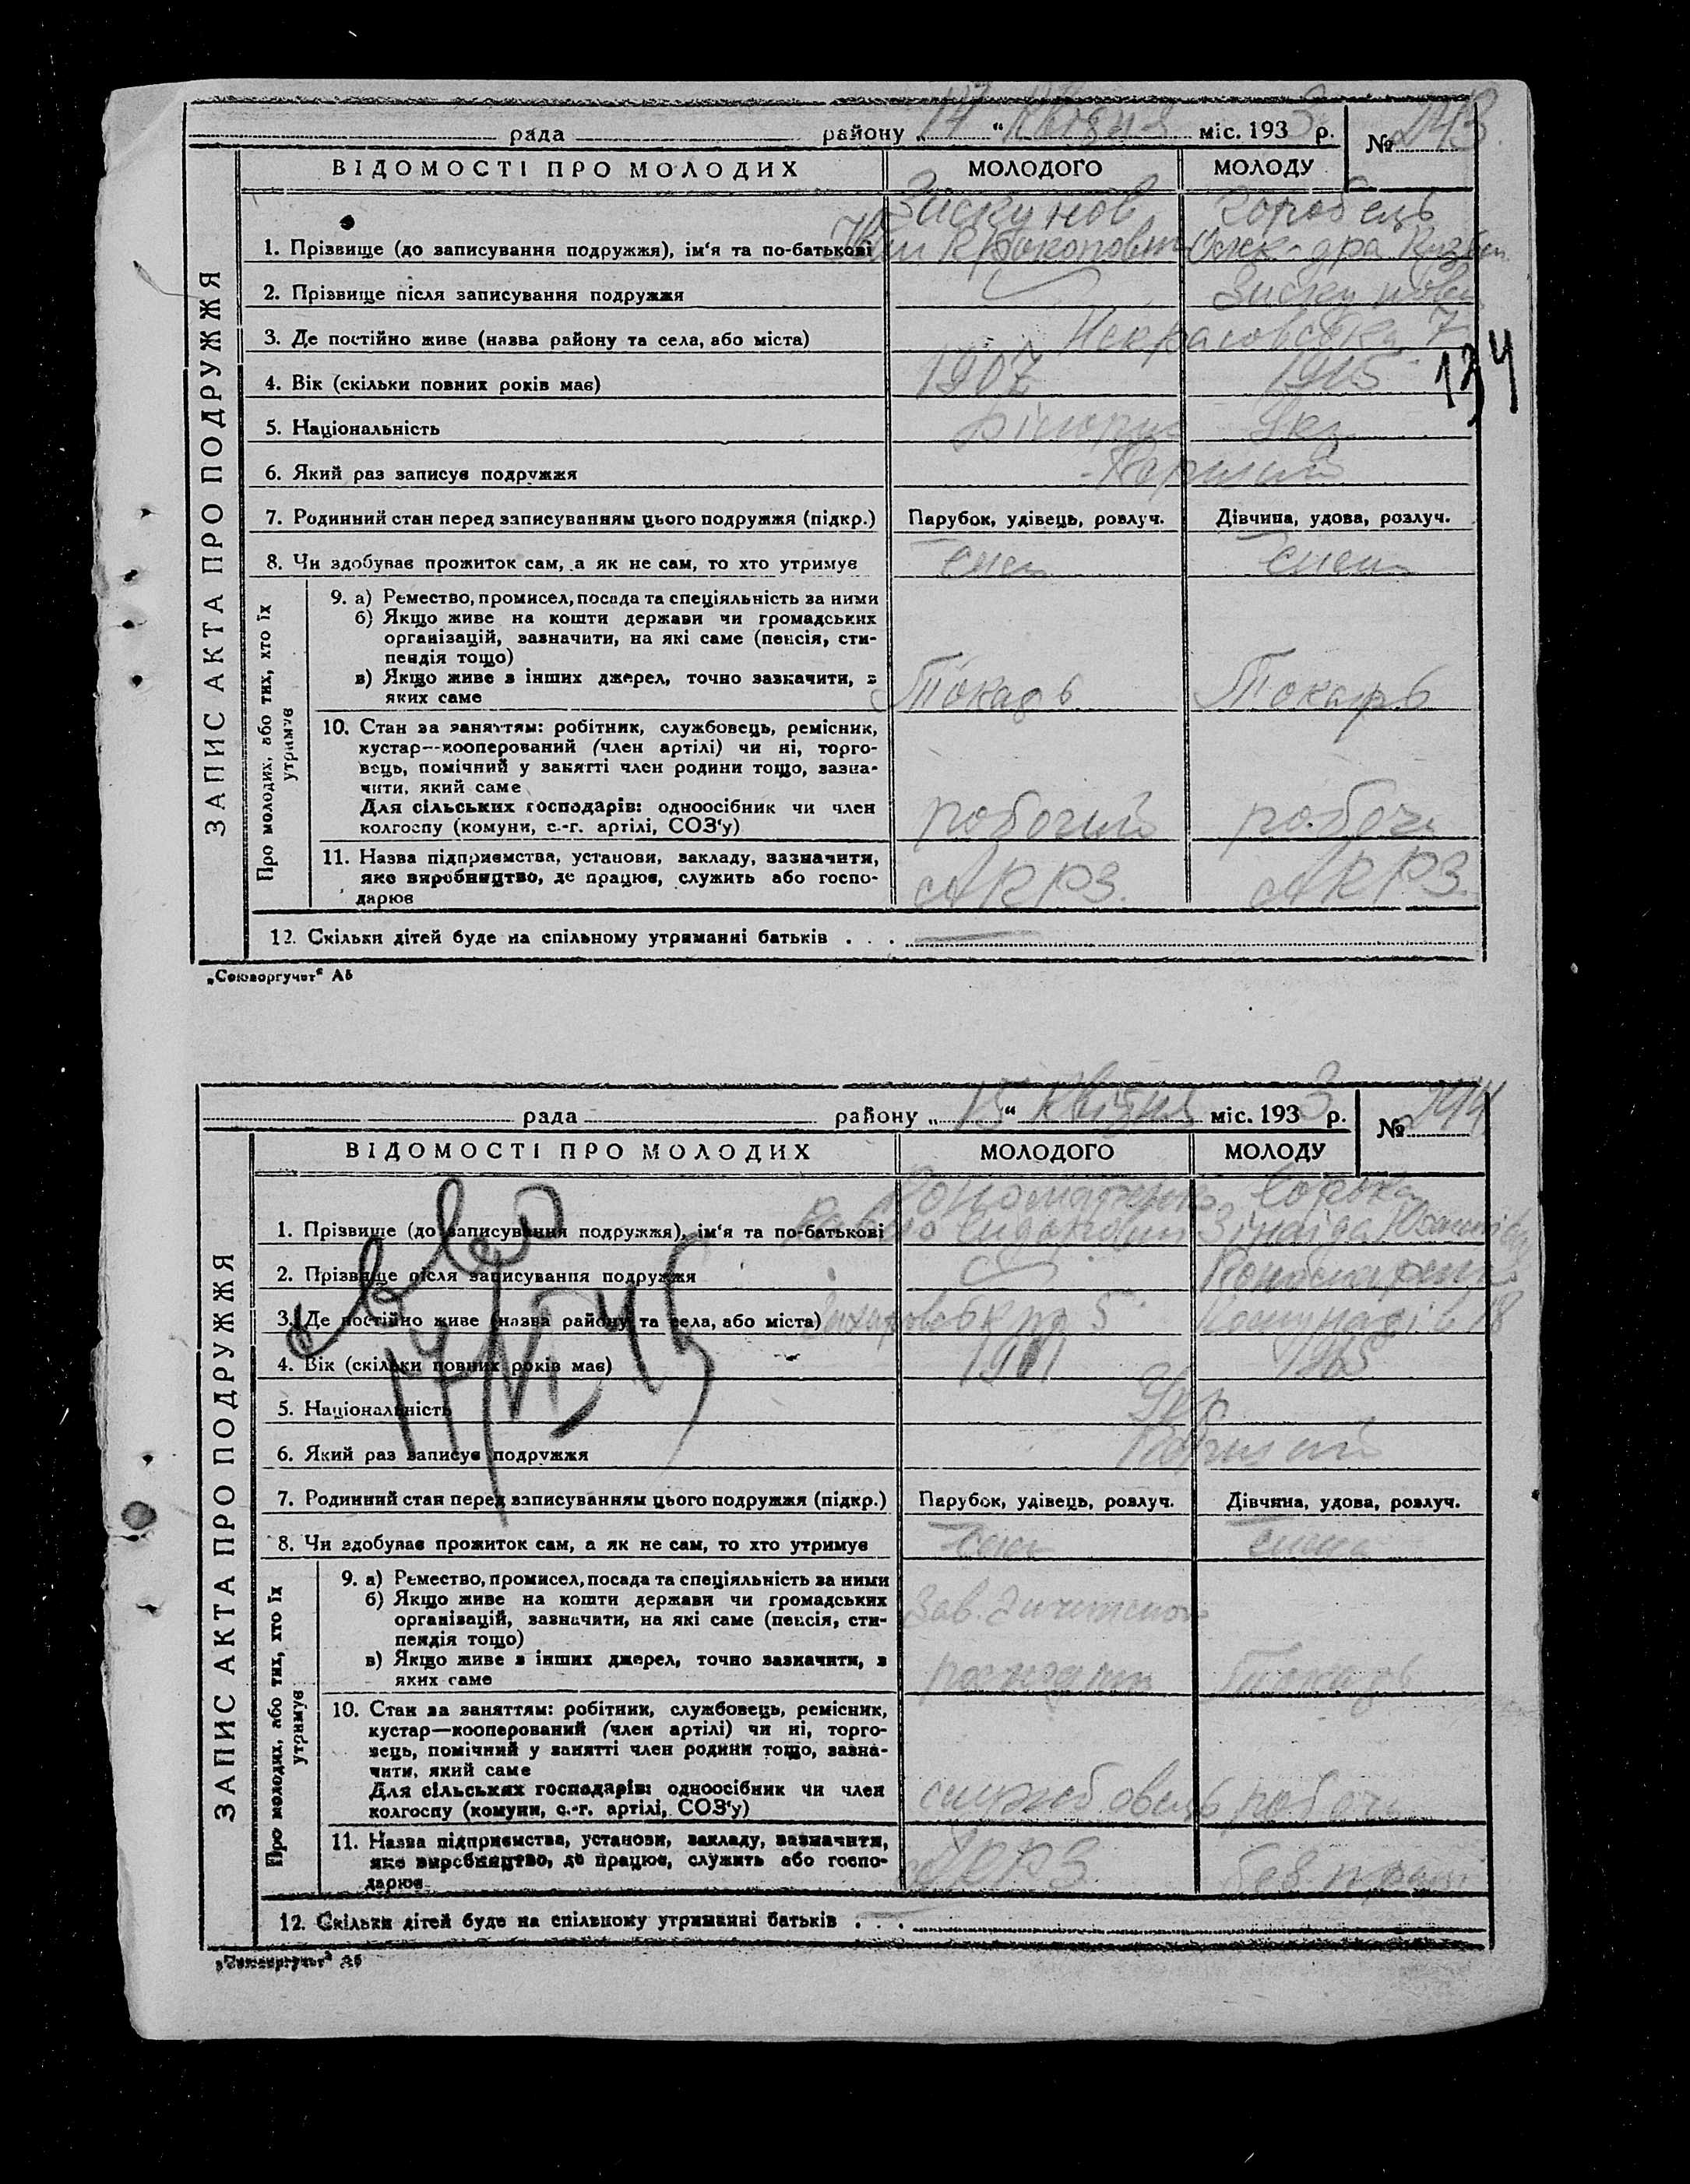 рада району „ 14 “ квітня міс. 193 3 р. № 243
ВІДОМОСТІ ПРО МОЛОДИХ МОЛОДОГО МОЛОДУ
ЗАПИС АКТА ПРО ПОДРУЖЖЯ
Зискунов
1. Прізвище (до записування подружжя), ім‘я та по-батькові Прокопович
2. Прізвище після записування подружжя
3. Де постійно живе (назва району та села, або міста) Некрасовська 7
134
4. Вік (скільки повних років має) 1907 1915
5. Національність Укр
6. Який раз записує подружжя Перший
7. Родинний стан перед записуванням цього подружжя (підкр.) Парубок, удівець, розлуч. Дівчина, удова, розлуч.
8. Чи здобував прожиток сам, а як не сам, то хто утримує
Про молодих, або тих, хто їх утримує
9. а) Ремество, промисел, посада та спеціяльність за ними
б) Якщо живе на кошти держави чи громадських
організацій, зазначити, на які саме (пенсія, сти-
пендія тощо)
в) Якщо живе з інших джерел, точно зазначити, з
яких саме Токарь Токарь
10. Стан за заняттям: робітник, службовець, ремісник,
кустар—кооперований (член артілі) чи ні, торго-
вець, помічний у занятті член родини тощо, зазна-
чити, який саме
Для сільських господарів: одноосібник чи член
колгоспу (комуни, с.-г. артілі, СОЗ‘у) робочий робоч.
11. Назва підприємства, установи, закладу, зазначити,
яке виробництво, де працює, служить або госпо-
дарює АРРЗ. АРРЗ.
12. Скільки дітей буде на спільному утриманні батьків . . .
„Союзоргучет“ А5
рада району „ 15 “ квітня міс. 193 3 р. № 244
ВІДОМОСТІ ПРО МОЛОДИХ МОЛОДОГО МОЛОДУ
ЗАПИС АКТА ПРО ПОДРУЖЖЯ
Пономаренко Сорока
1. Прізвище (до записування подружжя), ім‘я та по-батькові Сидорович Зінаїда
2. Прізвище після записування подружжя Пономаренко
3. Де постійно живе (назва району та села, або міста) 5 18
4. Вік (скільки повних років має)
5. Національність Укр
6. Який раз записує подружжя Перший
7. Родинний стан перед записуванням цього подружжя (підкр.) Парубок, удівець, розлуч. Дівчина, удова, розлуч.
8. Чи здобував прожиток сам, а як не сам, то хто утримує
Про молодих, або тих, хто їх утримує
9. а) Ремество, промисел, посада та спеціяльність за ними
б) Якщо живе на кошти держави чи громадських
організацій, зазначити, на які саме (пенсія, сти- Зав.
пендія тощо)
в) Якщо живе з інших джерел, точно зазначити, з
яких саме Токарь
10. Стан за заняттям: робітник, службовець, ремісник,
кустар—кооперований (член артілі) чи ні, торго-
вець, помічний у занятті член родини тощо, зазна-
чити, який саме
Для сільських господарів: одноосібник чи член
колгоспу (комуни, с.-г. артілі, СОЗ‘у) службовець робоч
11. Назва підприємства, установи, закладу, зазначити,
яке виробництво, де працює, служить або госпо-
дарює АРРЗ. без праці
12. Скільки дітей буде на спільному утриманні батьків . . .
„Союзоргучет“ А5